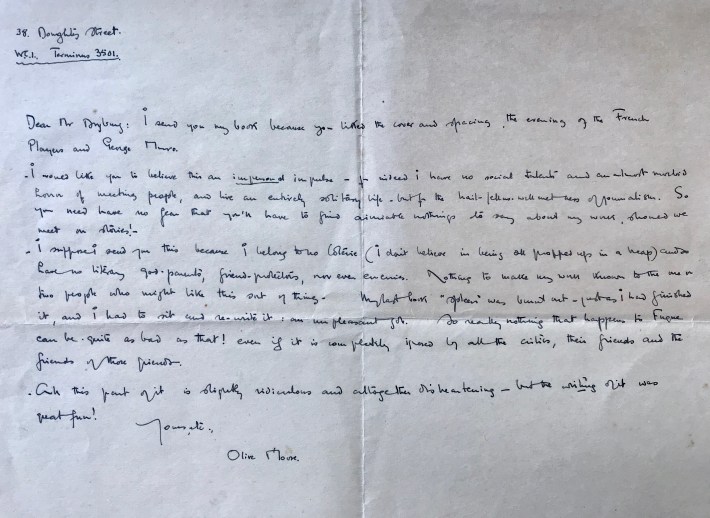 38. Doughty Street.
W.C.1. Terminus 3501.
Dear Mr : I send you my book because you liked the cover and spacing, the evening of the French
Players and George Moore.
- I would like you to believe this an impersonal impulse - for indeed I have no social talents and an almost morbid
horror of meeting people, and live an entirely solitary life - but for the hail-fellow-well-met-ness of journalism. So
you need have no fear that you'll have to find amiable nothings to say about my work, should we
meet on stories!-
- I suppose I send you this because I belong to no Côterie (I don't believe in being all propped up in a heap) and so
have no literary god-parents, friend-protectors, nor even enemies. Nothing to make my work known to the one or
two people who might like this sort of thing- My last book "Spleen" was burnt out - just as I had finished
it, and I had to sit and re-write it: an unpleasant job. So really nothing that happens to Fugue
can be quite as bad as that! even if it is completely ignored by all the critics, their friends and the
friends of those friends.
- Ah this part of it is slightly ridiculous and altogether disheartening - but the writing of it was
great fun!
Yours etc.,
Olive Moore.